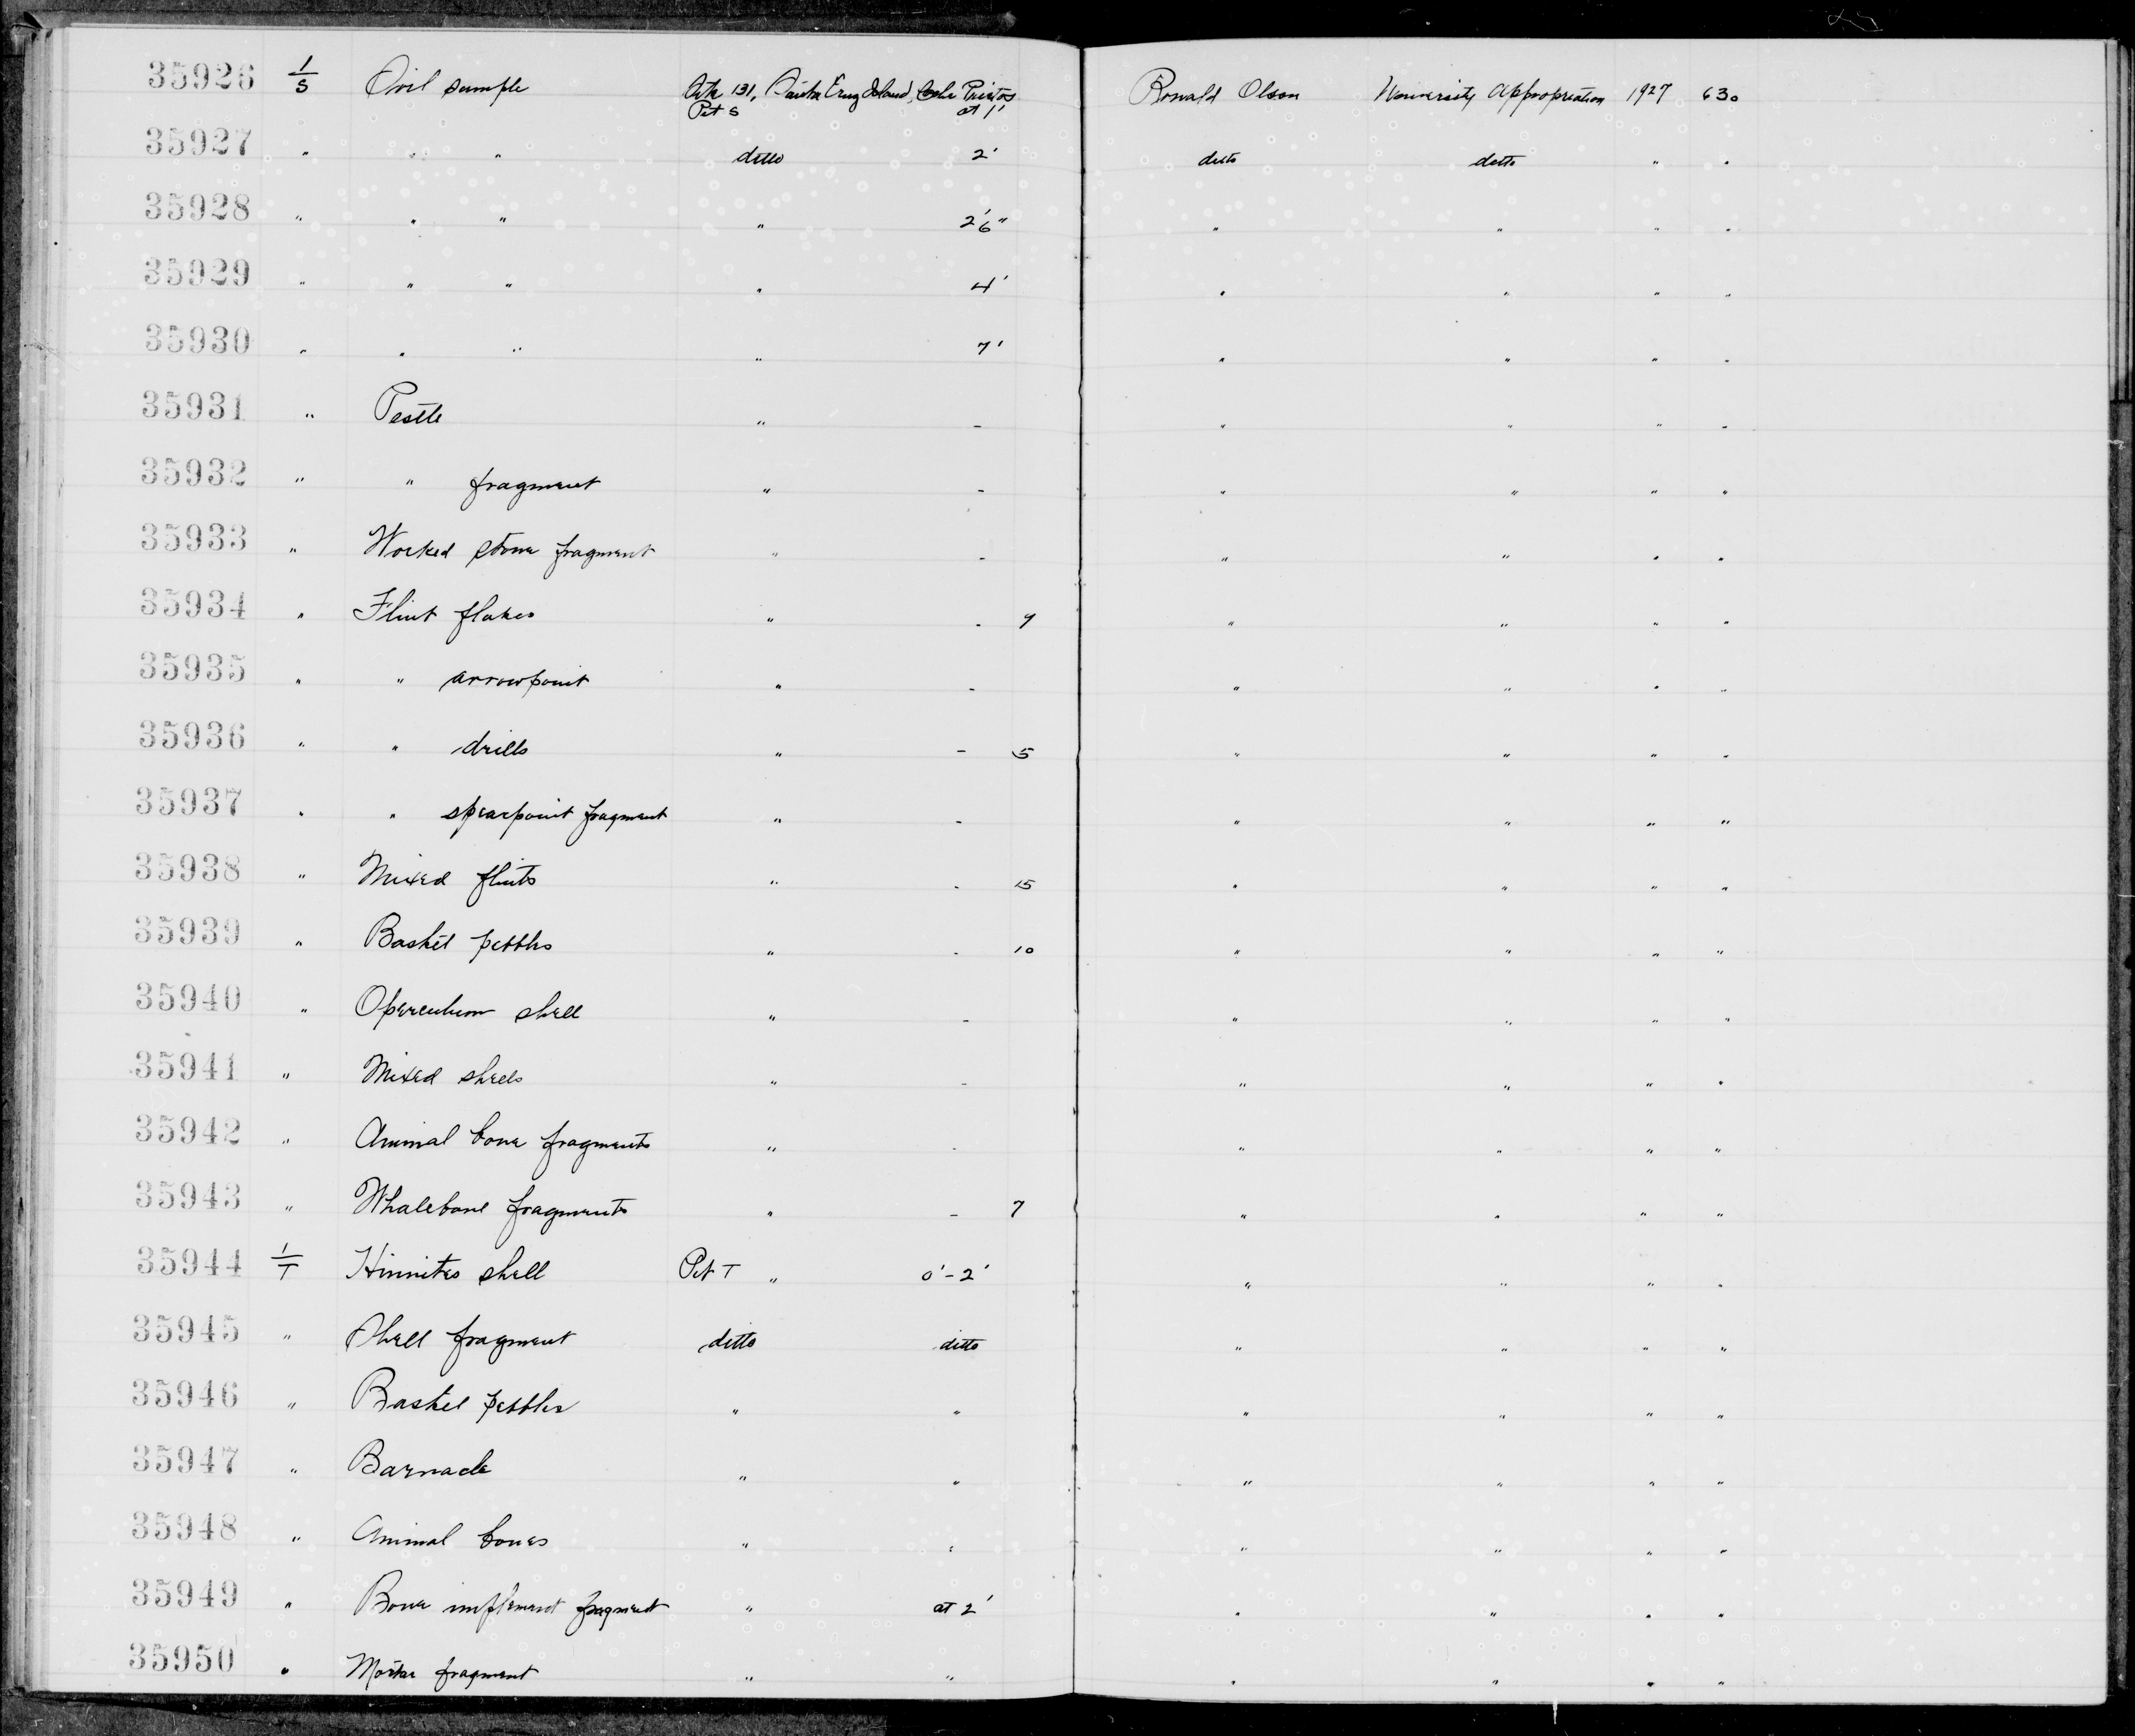 35926 1/S Soil sample Site 131, Santa Cruz Island, Coche Prietos Ronald Olson University Appropriation 1927 630
Pit S at 1'
35927 " " " ditto 2' ditto ditto " "
35928 " " " " 2'6" " " " "
35929 " " " " 4' " " " "
35930 " " " " 7' " " " "
35931 " Pestle " - " " " "
35932 " " fragment " - " " " "
35933 " Worked stone fragment " - " " " "
35934 " Flint flakes " - 9 " " " "
35935 " " arrowpoint " - " " " "
35936 " " drills " - 5 " " " "
35937 " " spearpoint fragment " - " " " "
35938 " Mixed flints " - 15 " " " "
35939 " Basket pebbles " - 10 " " " "
35940 " Operculum shell " - " " " "
35941 " Mixed shells " - " " " "
35942 " Animal bone fragments " - " " " "
35943 " Whalebone fragments " - 7 " " " "
35944 1/T Hinnites shell Pit T " 0'-2' " " " "
35945 " Shell fragment ditto ditto " " " "
35946 " Basket pebbles " " " " " "
35947 " Barnacle " " " " " "
35948 " Animal bones " " " " " "
35949 " Bone implement fragment " at 2' " " " "
35950 " Mortar fragment " " " " " "